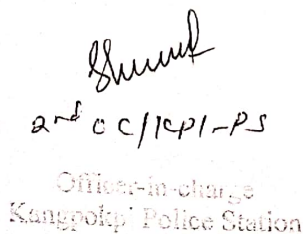 2nd OC/KPI-PS
Officer-in-charge
Kangpokpi Police Station